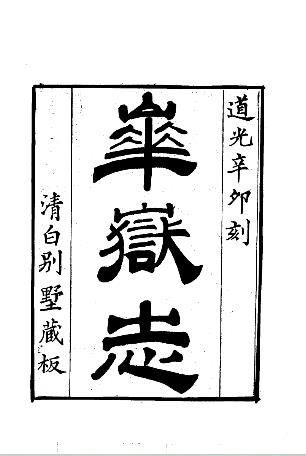 道光辛卯刻
華嶽志
清白別墅藏板